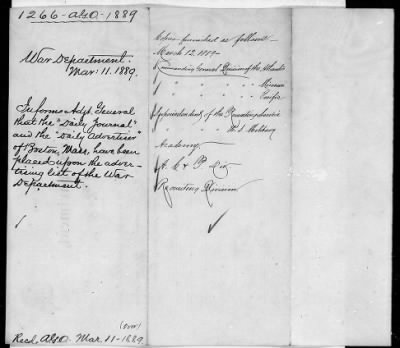 1266-AGO-1889
War Department.
Mar. 11. 1889.
Informs Adjt. General
that the "Daily Journal"
and the "Daily Advertiser"
of Boston, Mass, have been
placed upon the adver-
tising list of the War
Department.
(over)
Recd. A.G.O. Mar 11-1889.
Copies furnished as follows—
March 12. 1889—
Commanding General Division of the Atlantic
" " " " Missouri
" " " " Pacific
Superintendent of the Recruiting service
" " U.S. Military
Academy,
Recruiting Division